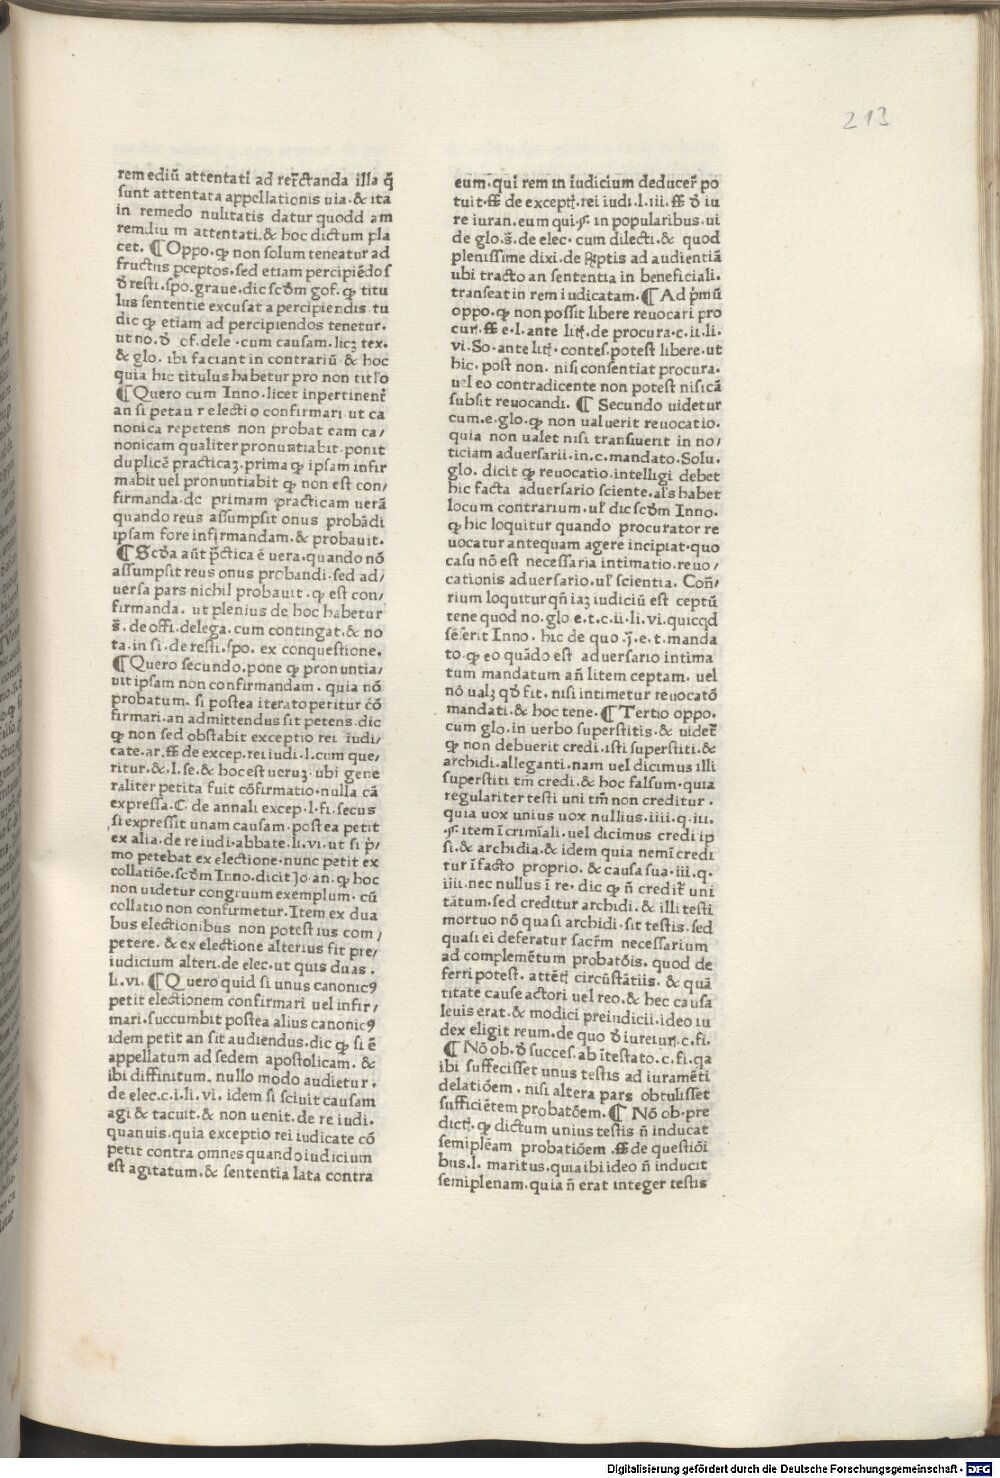 213
remediū attentati ad retctanda illa q̄
sunt attentata appellationis uia.& ita
in remedo nulitatis datur quodd am
remdiu m attentati.& hoc dictum pla
cet. ¶ Oppo.ꝙ non solum teneatur ad
fructus pceptos.sed etiam percipiēdos
ꝺ resti.spo.graue.dic scꝺm gof.ꝙ titu
lus sententie excusat a percipiendis tu
dic ꝙ etiam ad percipiendos tenetur.
ut no.ꝺ cf.dele.cum causam.licꝫ tex.
& glo. ibi faciant in contrariū & hoc
quia hic titulus habetur pro non titl̄o
¶ Quero cum Inno.licet inpertinent̄
an si petau r electio confirmari ut ca
nonica repetens non probat eam ca/
nonicam qualiter pronuntiabit.ponit
duplicē practicaꝫ.prima ꝙ ipsam infir
mabit uel pronuntiabit ꝙ non est con/
firmanda.dc primam practicam uerā
quando reus assumpsit onus probādi
ipsam fore infirmandam.& probauit.
¶ Scꝺa aūt p̄ctica ē uera.quando nō
assumpsit reus onus probandi.sed ad/
uersa pars nichil probauit.ꝙ est con/
firmanda. ut plenius de hoc habetur
s̄. de offi.delega.cum contingat.& no
ta.in si.de resti.spo. ex conquestione.
¶ Quero secundo.pone ꝙ pronuntia/
uit ipsam non confirmandam. quia nō
probatum. si postea iterato peritur cō
firmari.an admittendus sit petens.dic
ꝙ non sed obstabit exceptio rei iudi/
cate.ar.ff de excep.rei iudi.l.cum que/
ritur.&.l.se.& hoc est ueruꝫ.ubi gene
raliter petita fuit cōfirmatio.nulla cā
expressa.C. de annali excep.l.fi.secus
si expressit unam causam.postea petit
ex alia.de re iudi.abbate.li.vi.ut si p̄/
mo petebat ex electione.nunc petit ex
collatiōe.scꝺm Inno.dicit Jo an.ꝙ hoc
non uidetur congruum exemplum. cū
collatio non confirmetur.Item ex dua
bus electionibus non potest ius com/
petere. & ex electione alterius fit pre/
iudicium alteri.de elec.ut quis duas.
li.vi. ¶ Quero quid si unus canonicꝰ
petit electionem confirmari uel infir/
mari.succumbit postea alius canonicꝰ
idem petit an sit audiendus.dic ꝙ si ē
appellatum ad sedem apostolicam. &
ibi diffinitum. nullo modo audietur.
de elec.c.i.li.vi. idem si sciuit causam
agi & tacuit.& non uenit.de re iudi.
quanuis.quia exceptio rei iudicate cō
petit contra omnes quando iudicium
est agitatum.& sententia lata contra
eum.qui rem in iudicium deducer̄ po
tuit.ff de except.rei iudi.l.iii.ff ꝺ iu
re iuran.eum qui.§.in popularibus.ui
de glo.s̄.de elec.cum dilecti.& quod
plenissime dixi.de p̄ptis ad audientiā
ubi tracto an sententia in beneficiali.
transeat in rem iudicatam. ¶ Ad p̄mū
oppo.ꝙ non possit libere reuocari pro
cur.ff e.l.ante lit.de procura.c.ii.li.
vi.So.ante lit.contes.potest libere.ut
hic. post non. nisi consentiat procura.
uel eo contradicente non potest nisi cā
subsit reuocandi. ¶ Secundo uidetur
cum.e.glo.ꝙ non ualuerit reuocatio.
quia non ualet nisi transiuerit in no/
ticiam aduersarii.in.c.mandato.Solu.
glo. dicit ꝙ reuocatio.intelligi debet
hic facta aduersario sciente.al̄s habet
locum contrarium.ul̄ dic scꝺm Inno.
ꝙ hic loquitur quando procurator re
uocatur antequam agere incipiat.quo
casu nō est necessaria intimatio.reuo/
cationis aduersario.ul̄ scientia. Con̄/
rium loquitur qn̄ iaꝫ iudiciū est ceptū
tene quod no.glo e.t.c.ii.li.vi.quicqd
sēserit Inno. hic de quo .j.e.t.manda
to.ꝙ eo quādo est aduersario intima
tum mandatum an̄ litem ceptam. uel
nō ualꝫ qꝺ fit. nisi intimetur reuocatō
mandati.& hoc tene. ¶ Tertio oppo.
cum glo.in uerbo superstitis.& uidet̄
ꝙ non debuerit credi.isti superstiti.&
archidi.alleganti.nam uel dicimus illi
superstiti tm̄ credi.& hoc falsum.quia
regulariter testi uni tm̄ non creditur.
quia uox unius uox nullius.iiii.q.iii.
.§.item ī crimīali.uel dicimus credi ip
si.& archidia.& idem quia nemī credi
tur ī facto proprio. & causa sua.iii.q.
iiii.nec nullus ī re. dic ꝙ n̄ credit̄ uni
tātum.sed creditur archidi.& illi testi
mortuo nō quasi archidi.sit testis.sed
quasi ei deferatur sacr̄m necessarium
ad complemētum probatōis. quod de
ferri potest. attēt circūstātiis. & quā
titate cause actori uel reo.& hec causa
leuis erat.& modici preiudicii.ideo iu
dex eligit reum.de quo ꝺ iureiur.c.fi.
¶ Nō ob.ꝺ succes.ab ītestato.c.fi.qa
ibi suffecisset unus testis ad iuramēti
delatiōem. nisi altera pars obtulisset
sufficiētem probatōem. ¶ Nō ob.pre
dict. ꝙ dictum unius testis n̄ inducat
semiplēam probatiōem.ff de questiōi
bus.l. maritus.quia ibi ideo n̄ inducit
semiplenam.quia n̄ erat integer testis
Digitalisierung gefördert durch die Deutsche Forschungsgemeinschaft - DFG